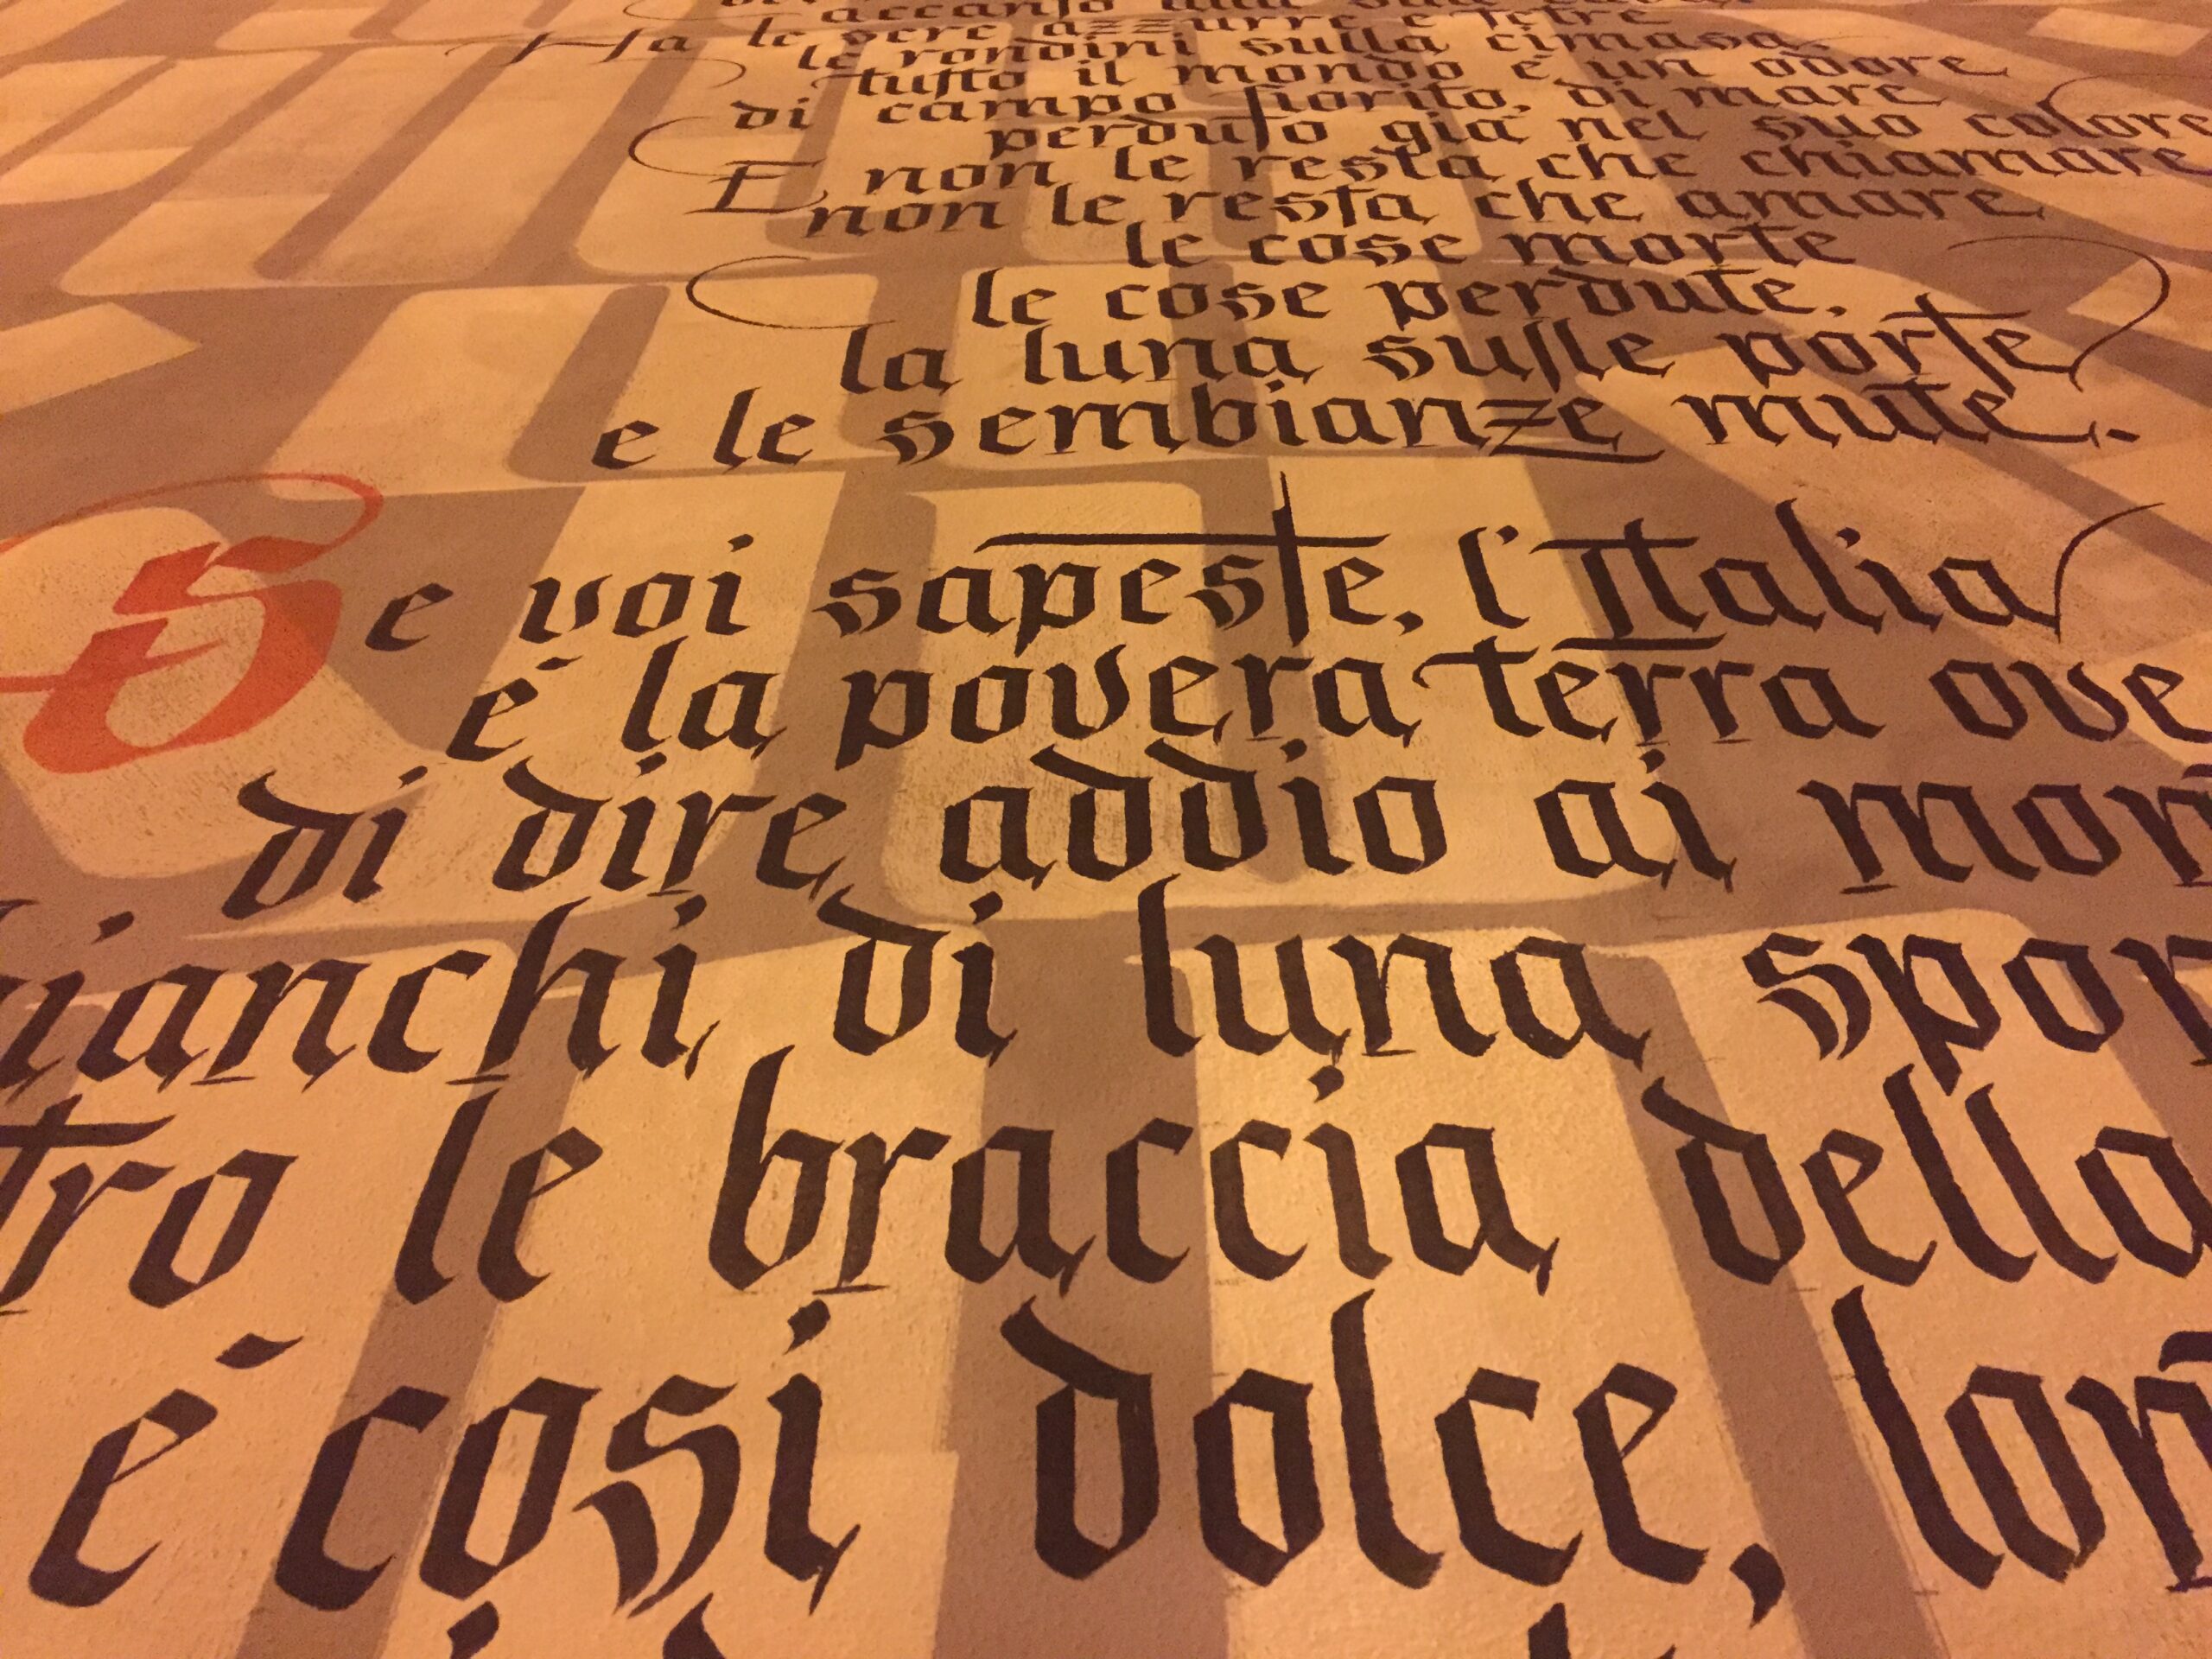 accanto alla sua
Ha le sere azzurre e tetre
le rondini sulla cimasa
tutto il mondo è un odore
di campo fiorito, di mare
perduto già nel suo colore
E non le resta che chiamare
non le resta che amare
le cose morte
le cose perdute,
la luna sulle porte
e le sembianze mute.
Se voi sapeste, l'Italia
é la povera terra ove
di dire addio ai mon
ianchi di luna spor
tro le braccia della
é cosi dolce, lon